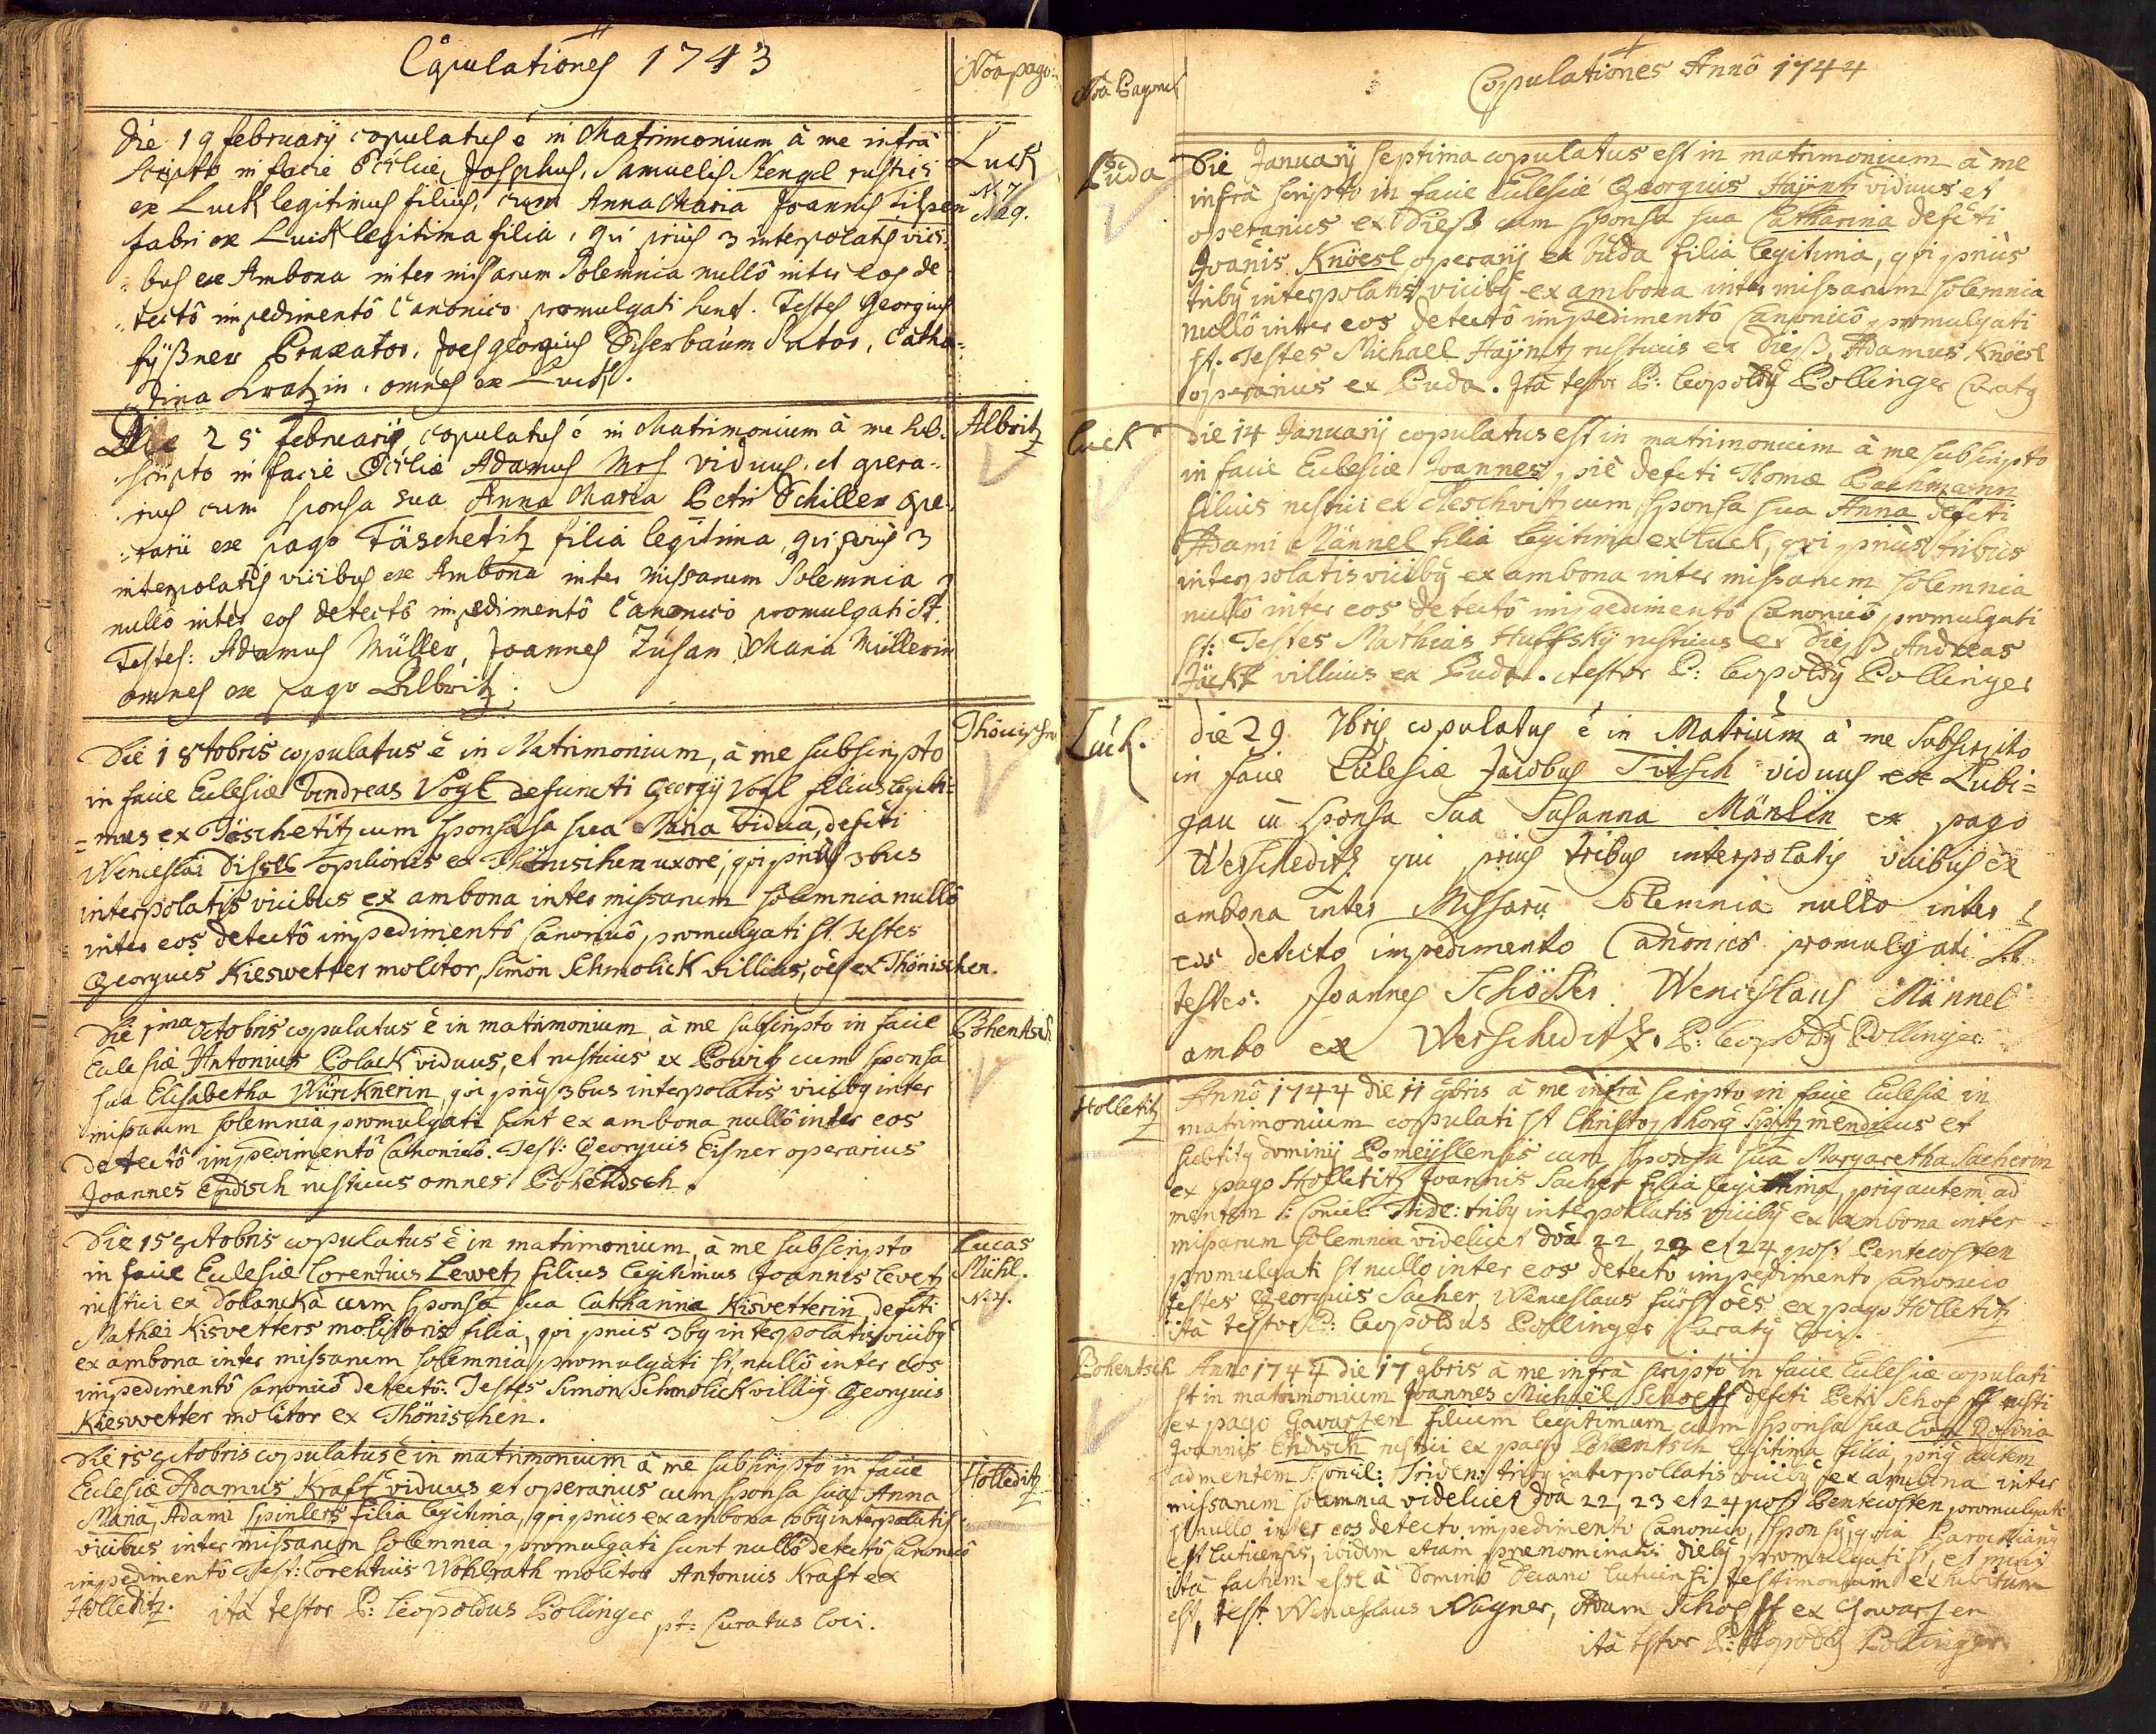 Copulationes 1743
Noa pago:
Die 19 february copulatus ê in Matrimonium â me infrà
scripto in facie Eccliae, Josephus, Samuelis Stengel rustici
ex Luck legitimus filius, cum Anna Maria Joannis
fabri ex Luck legitima filia, qui prius 3 interpolatis vici-
bus ex Ambona inter missarum Solemnia nullô inter eos de-
tectô impedimentô Canonico promulgati sunt. Testes Georgius
Praxator, Joes georgius Sutor, Catha-
rina omnes ex Luck.
Luck
N. 7
N 29.
Die 25 february copulatus ê in Matrimonium â me sub-
scripto in facie Eccliae Adamus viduus, et opera-
rius cum sponsa sua Anna Maria Petri Schiller ope-
rarii ex pago Täschetitz filia legitima, qui prius 3
interpolatis vicibus ex Ambona inter missarum Solemnia
nullô inter eos detectô impedimentô Canonicô promulgati st.
Testes: Adamus Müller, Joannes Zusan, Maria Müllerin
omnes ex pago Albritz.
Albritz
Die 1 8tobris copulatus ê in Matrimonium, â me subscripto
in facie Eclesiae Andreas Vogl defuncti Georgy Vogl filius legiti-
=mus ex Töschetitz cum sponsa sua Maria vidua, defcti
Wenceslai opilionis ex Thönischen uxore, qui prius 3bus
interpolatis vicibus ex ambona inter missarum solemnia nullô
inter eos detectô impedimentô Canonicô promulgati st Testes
Georgius Kieswetter molitor, Simon Schmolick villicus, oes ex Thönischen.
Die 1ma octobris copulatus ê in matrimonium â me subscripto in facie
Eclesiae Antonius Polack viduus, et rusticus ex Powitz cum sponsa
sua Elisabetha Würcknerin, qui prius 3bus interpolatis viciby inter
missarum solemnia promulgati sunt ex ambona nullô inter eos
detectô impedimentô Canonicô. Test: Georgius Eisner operarius
Joannes Endisch rusticus omnes Pohentsch.
Pohentsch
Die 15 octobris copulatus ê in matrimonium, â me subscripto
in facie Eclesiae Lorentius Lewetz filius legitimus Joannis Levetz
rustici ex Dolancka cum sponsa sua Catharina Kisvetterin, defcti
Mathaei Kisvetters molitoris filia, qui prius 3by interpolatis viciby
ex ambona inter missarum solemnia promulgati st, nullô inter eos
impedimentô Canonicô detectô. Testes Simon Schmolick villicy Georgius
Kieswetter molitor ex Thönischen.
Lucas
Mühl.
Die 15 octobris copulatus ê in matrimonium â me subscripto in facie
Eclesiae Adamus Kraft viduus et operarius cum sponsa sua Anna
Maria, Adami Spinlers filia legitima, qui prius ex ambona 3by interpolatis
vicibus inter missarum solemnia promulgati sunt nullô detectô Canonicô
impedimentô Test: Lorentius Wohlrath molitor Antonius Kraft ex
Holleditz. ità testor P: Leopoldus Pollinger
pt: Curatus loci.
Holleditz
Copulationes Annô 1744
Noa Pagorum
Die January septima copulatus est in matrimonium â me
infrà scripto in facie Eclesiae Georgius Haÿntz viduus et
operarius ex Dieß cum sponsa sua Catharina defcti
Joanis Knöesl operary ex Buda filia legitima, qui prius
triby interpolatis viciby ex ambona inter missarum solemnia
nullô inter eos detectô impedimentô Canonicô promulgati
st. Testes Michael Haÿntz rusticus ex Dieß, Adamus Knöesl
operarius ex Buda. Ità testor P: Leopoldy Pollinger Curaty
Buda
Luck
Die 14 January copulatus est in matrimonium â me subscripto
in facie Eclesiae Joannes, piè defcti Thomae Pachmann
filius rustici ex cum sponsa sua Anna defcti
Adami Männel filia legitima ex Luck, qui prius tribus
interpolatis viciby ex ambona inter missarum solemnia
nullô inter eos detectô impedimentô Canonicô promulgati
st: Testes Mathias Huffsky rusticus ex Dieß Andreas
Jäckl villicus ex Buda. testor P: Leopoldy Pollinger
Luck.
Die 29 7bris copulatus ê in Matrium â me Subscripto
in facie Eclesiae Jacobus Titsch viduus ex Lubi=
gau cu sponsa Sua Susanna Mänlin ex pago
Werscheditz qui prius tribus interpolatis vicibus ex
ambona inter Missaru Solemnia nullo inter
eos detecto impedimento Canonico promulgati St
testes: Joannes Schösser Wenceslaus Männel
ambo ex Werscheditz. P: Leopoldy Pollinger
Holletitz
Anno 1744 die 11 9bris â me infrà scripto in facie Eclesiae in
matrimonium copulati st Christophorg Spitz mendicus et
subdity dominÿ Pomeÿslensis cum sponsa sua Margaretha Sacherin
ex pago Holletitz Joannis Sacher filia legitima, prig autem ad
mentem S: Concil: Tride: triby interpollatis viciby ex ambona inter
missarum solemnia videlicet doa 22, 23 et 24 post Pentecosten
promulgati st nullo inter eos detecto impedimento Canonico
testes Georgius Sacher, Wenceslaus fürst oes ex pago Holletitz
ità testor P: Leopoldus Pollinger Curaty loci.
Pohentsch
Anno 1744 die 17 9bris â me infrà scripto in facie Eclesiae copulati
st in matrimonium Joannes Michaël Schopff defcti Petri Schopff rusti
ex pago Gewarsen filium legitimum cum sponsa sua Eva Rosina
Joannis Endisch rustici ex pago Pohentsch legitima filia, prig autem
ad mentem S: Concil: Triden: triby interpollatis viciby ex ambona inter
missarum solemnia videlicet doa 22, 23 et 24 post Pentecosten promulgati
st nullo inter eos detecto impedimento Canonico, sponsg, quia Parochiang
est Luticensis, ibidem etiam prenominatis dieby promulgati st, et mihi
ità factum esse â Domino Decano Luticensi testimonium exhibitum
est, test Wenceslaus Wagner, Adam Schopff ex Gewarsen
ità testor P: Leopoldg Pollinger